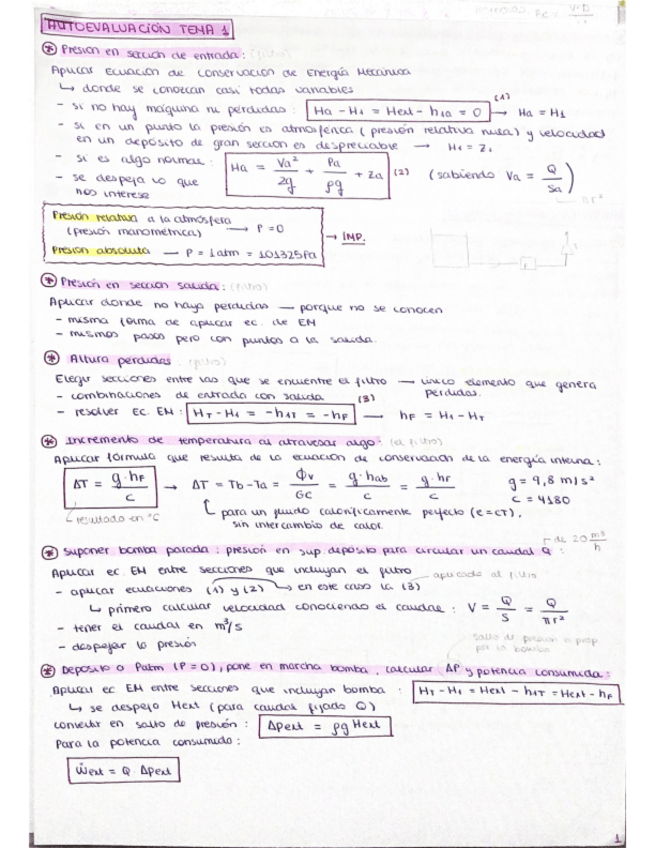 AUTOEVALUACIÓN TEMA 1
* Presión en sección de entrada: (filtro)
Aplicar Ecuación de conservación de Energía Mecánica
↳ donde se conozcan casi todas variables
- si no hay máquina ni pérdidas: Ha - H1 = Hext - h1a = 0 (1) → Ha = H1
- si en un punto la presión es atmosférica (presión relativa nula) y velocidad
en un depósito de gran sección es despreciable → H1 = Z1
- si es algo normal: Ha = Va²/2g + Pa/ρg + Za (2) (sabiendo Va = Q/Sa)
- se despeja lo que
nos interese
πr²
Presión relativa a la atmósfera
(presión manométrica) → P = 0
Presión absoluta — P = 1atm = 101325Pa
→ IMP.
* Presión en sección salida: (filtro)
Aplicar donde no haya pérdidas — porque no se conocen
- misma forma de aplicar ec. de EM
- mismos pasos pero con puntos a la salida.
* Altura pérdidas: (filtro)
Elegir secciones entre las que se encuentre el filtro — único elemento que genera
pérdidas.
- combinaciones de entrada con salida
- resolver Ec. EM: HT - H1 = -h1T = -hF (3) → hF = H1 - HT
* Incremento de temperatura al atravesar algo: (el filtro)
Aplicar fórmula que resulta de la ecuación de conservación de la energía interna:
ΔT = g·hF/c → ΔT = Tb - Ta = Φv/GC = g·hab/c = g·hF/c
g = 9,8 m/s²
c = 4180
↳ resultado en °C
para un fluido caloríficamente perfecto (e=cT),
sin intercambio de calor.
* Suponer bomba parada: presión en sup. depósito para circular un caudal Q:
de 20 m³/h
Aplicar ec. EM entre secciones que incluyan el filtro
- aplicar ecuaciones (1) y (2) → en este caso la (3) — aplicada al filtro
↳ primero calcular velocidad conociendo el caudal: V = Q/S = Q/πr²
- tener el caudal en m³/s
- despejar la presión
salto de presión prop
por la bomba
* Depósito a Patm (P=0), pone en marcha bomba, calcular ΔP y potencia consumida:
Aplicar ec EM entre secciones que incluyan bomba: HT - H1 = Hext - h1T = Hext - hF
↳ se despeja Hext (para caudal fijado Q)
convertir en salto de presión: ΔPext = ρg Hext
Para la potencia consumida:
Ẇext = Q · ΔPext
1